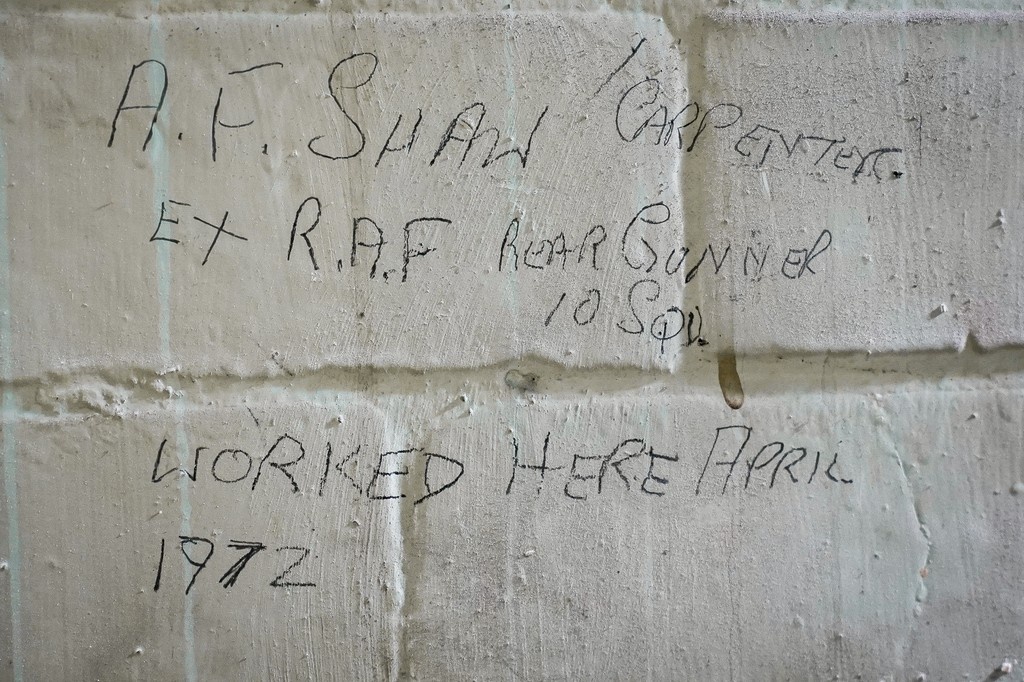 A. F. SHAW / CARPENTER.
EX R.A.F REAR GUNNER
10 SQD.
WORKED HERE APRIL
1972